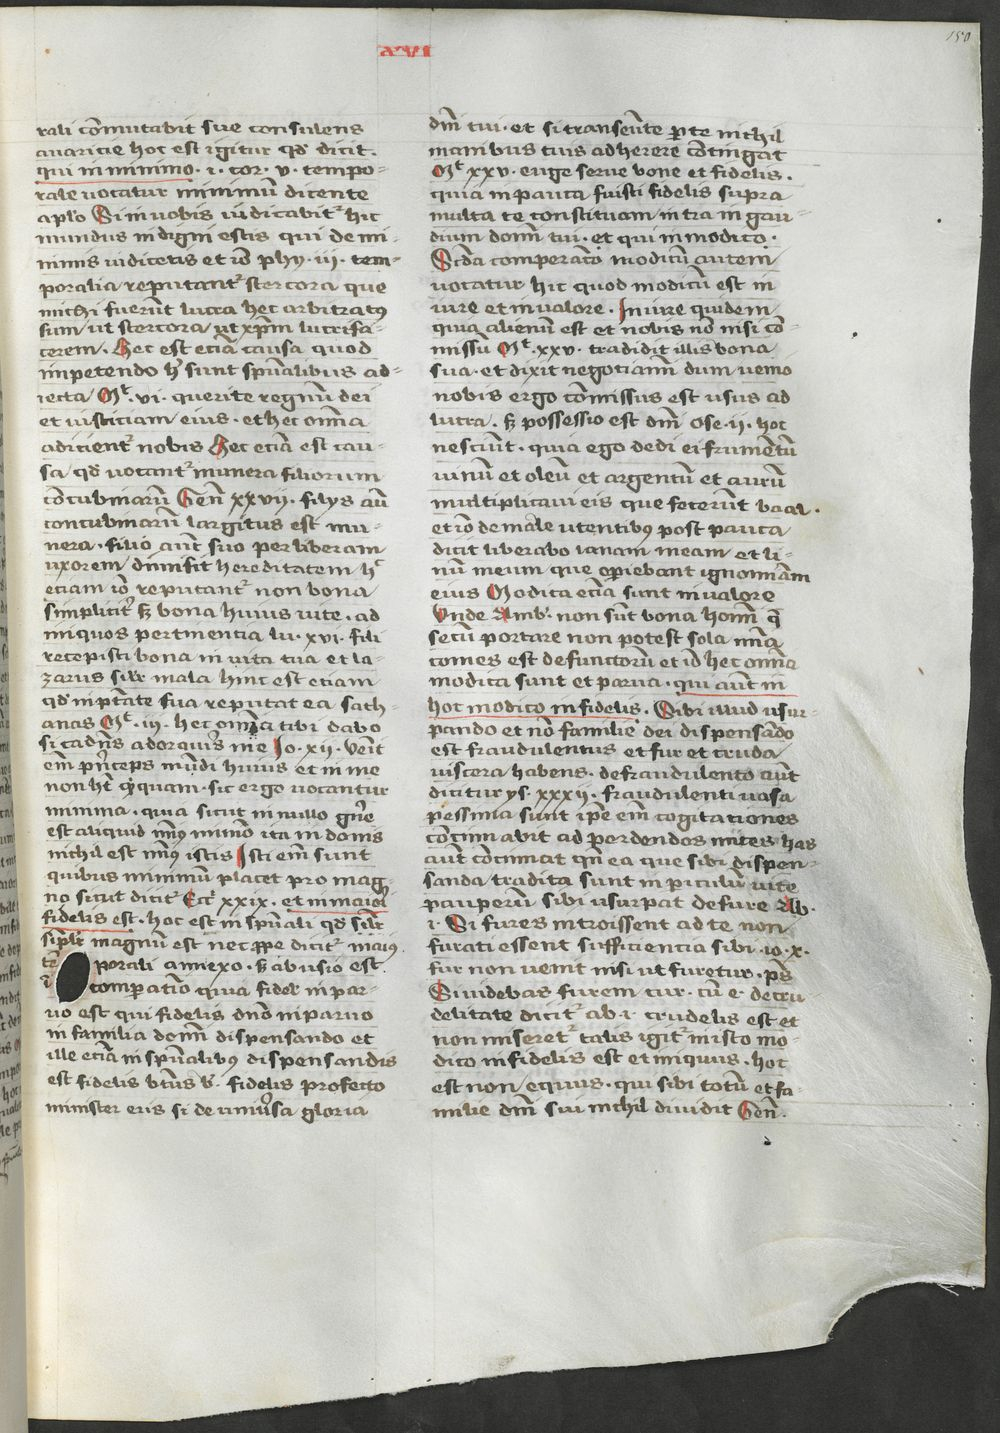 XVI
150
rali cōmutabit sue consulens
avaricie hoc est igitur qd̄ dicit.
qui in minimo. i. cor. v. tempo-
rale vocatur minimū dicente
aplo Si in vobis iudicabit᷒ hic
mundus indigni estis qui de mi-
nimis iudicetis et iō phy. iii. tem-
poralia reputant᷒ stercora que
michi fuerūt lucra hec arbitratus
sum ut stercora ut xp̄m lucrifa-
cerem. Hec est eciā causa quod
in petendo hec sunt sp̄ualibus ad-
iecta Mt. vi. querite regnum dei
et iusticiam eius. et hec om̄ia
adicient᷒ nobis Hec eciā est cau-
sa qd̄ vocant᷒ munera filiorum
cōcubinarū Gen̄ xxvii. filys aū
concubinarū largitus est mu-
nera. filio aūt suo per liberam
uxorem dimisit hereditatem hec
etiam iō reputant᷒ non bona
simplicit᷒ sꝫ bona huius vite. ad
iniquos pertinencia lu. xvi. fili
recepisti bona in vita tua et la-
zarus silr̄ mala hinc est etiam
qd̄ in ptātate sua reputat ea sath-
anas Mt. iii. hec om̄ia tibi dabo
si cadēns adorav̄is me Io. xii. venit
em̄ p̄nceps mūdi huius et in me
non hēt q̄cquam. sic ergo vocantur
minima. quia sicut in nullo gn̄e
est aliquid min̄ minimo ita in donis
nichil est min̄ istis Isti em̄ sunt
quibus minimū placet pro mag-
no sicut dicit᷒ Ecc̄ xxix. et in maiori
fidelis est. hoc est in sp̄uali qd̄ silr̄
simplr̄ magnum est nec ꝓpe dicit᷒ maius
tē porali annexo. sꝫ abusio est
comparatio quia fidel᷒ in par-
vo est qui fidelis dn̄o in parvo
in familia domini dispensando et
ille eciā in sp̄ualibus dispensandis
est fidelis vn̄us b. fidelis profecto
minister eris si de universa gloria
dn̄i tui. et si transeūte per te nichil
manibus tuis adherere cōtingat
Mt xxv. euge serve bone et fidelis.
quia in pauca fuisti fidelis supra
multa te constituam intra in gau-
dium domini tui. et qui in modico.
Scd̄a comperatō modicū autem
vocatur hic quod modicū est in
iure et in valore. In iure quidem
quia alienū est et nobis nō nisi cō-
missū Mt. xxv. tradidit illis bona
sua. et dixit negociamini dum venio
nobis ergo cōmissus est usus ad
lucra. sꝫ possessio est dn̄i Ose. ii. hoc
nesciūt. quia ego dedi ei frumētū
vinū et oleū et argentū et aurū
multiplicavi eis que fecerūt baal.
et iō de male utentibus post pauca
dicit liberabo lanam meam et li-
nū meum que operiebant ignominiam
eius Modica etiā sunt in valore
Unde Amb. non sūt bona hominū q̄
secū portare non potest sola mīa
comes est defunctorū et iō hec om̄ia
modica sunt et parva. qui aūt in
hoc modico infidelis. Sibi illud usur-
pando et nō familie dei dispensādo
est fraudulentus et fur et cruda
viscera habens. de fraudulento aūt
dicitur ys. xxxii. fraudulenti vasa
pessima sunt ipse em̄ cogitationes
cōcinnabit ad perdendos mites has
aūt cōcinnat qn̄ ea que sibi dispen-
sanda tradita sunt in piculū vite
pauperum sibi usurpat de fure Ab.
i. Si fures introissent ad te non
furati essent sufficiencia sibi. io. x.
fur non venit nisi ut furetur. ps̄
Si videbas furem cur. cū e. de cru-
delitate dicit᷒ ab. i. crudelis est et
non miseret᷒ talis igit᷒ in isto mo-
dico infidelis est et iniquus. hoc
est non equus. qui sibi totū et fa-
milie dn̄i sui nichil dividit Gen̄.